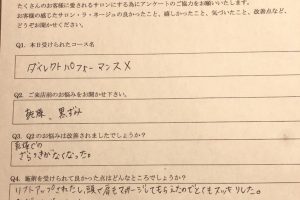 たくさんのお客様に愛されるサロンにする為にアンケートのご協力をお願いいたします。
お客様の感じたサロン・ラ・ネージュの良かったこと、嬉しかったこと、気づいたこと、改善点など、
どうぞお聞かせください。
Q1. 本日受けられたコース名
ダイレクトパフォーマンスX
Q2. ご来店前のお悩みをお聞かせ下さい。
乾燥、黒ずみ
Q3. Q2のお悩みは改善されましたでしょうか？
乾燥での
ざらつきがなくなった。
Q4. 施術を受けられて良かった点はどんなところでしょうか？
リフトアップされたし、頭や肩もマッサージしてもらえたのでとてもスッキリした。